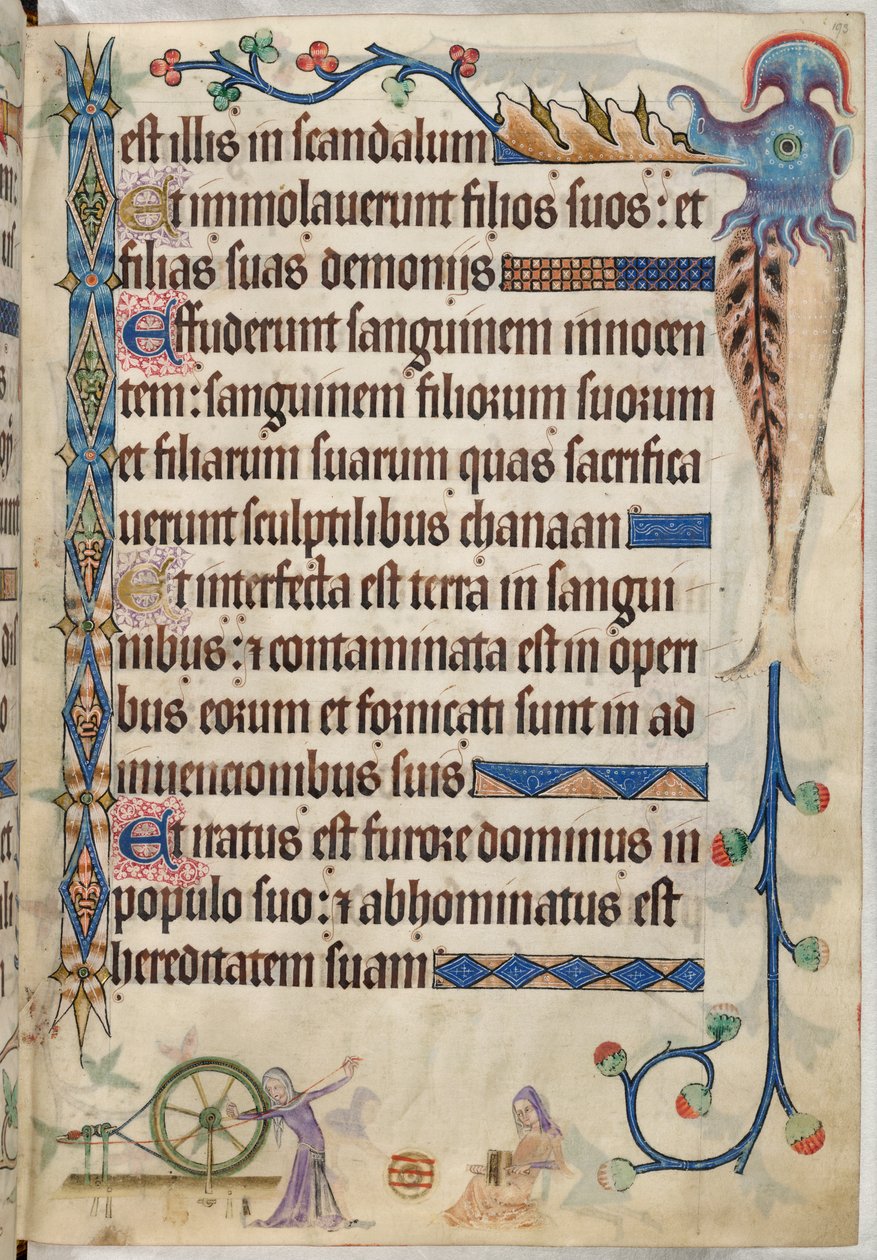 193
est illis in scandalum
Et immolauerunt filios suos: et
filias suas demonijs
Effuderunt sanguinem innocen
tem: sanguinem filiorum suorum
et filiarum suarum quas sacrifica
uerunt sculptilibus chanaan
Et interfecta est terra in sangui
nibus: ⁊ contaminata est in operi
bus eorum et fornicati sunt in ad
inuencionibus suis
Et iratus est furore dominus in
populo suo: ⁊ abhominatus est
hereditatem suam